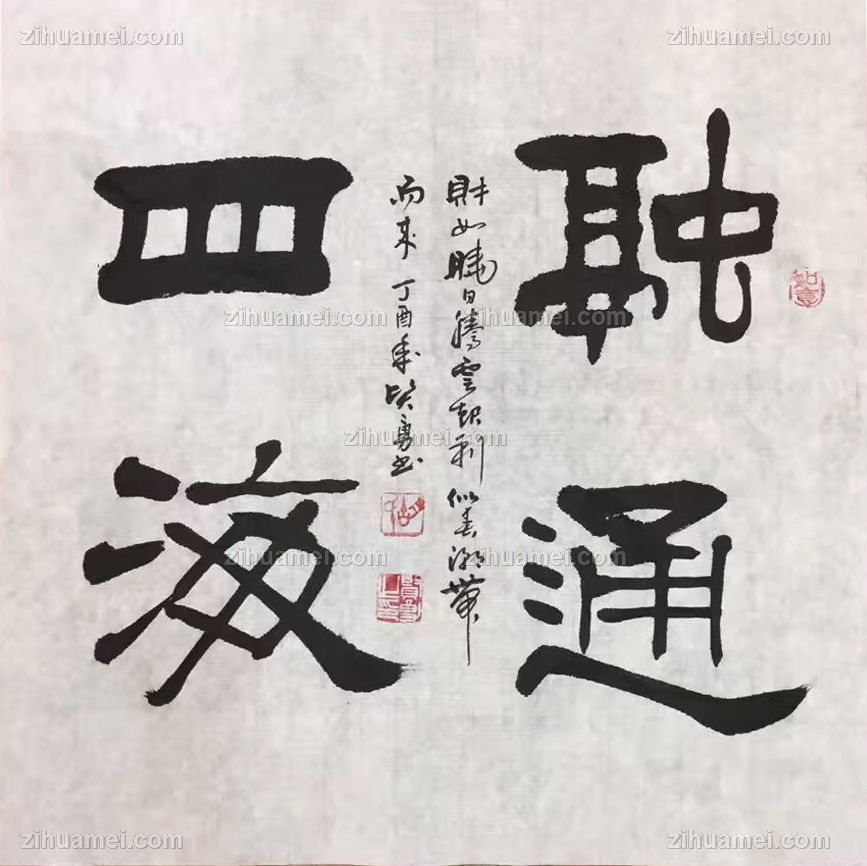 zihuamei.com
zihuamei.com
融通
四海
財如曉日騰雲起利似春潮帶
雨来 丁酉年賢勇书
如意
賢勇之印
zihuamei.com
zihuamei.com
zihuamei.com
zihuamei.com
zihuamei.com
zihuamei.com
zihuamei.com